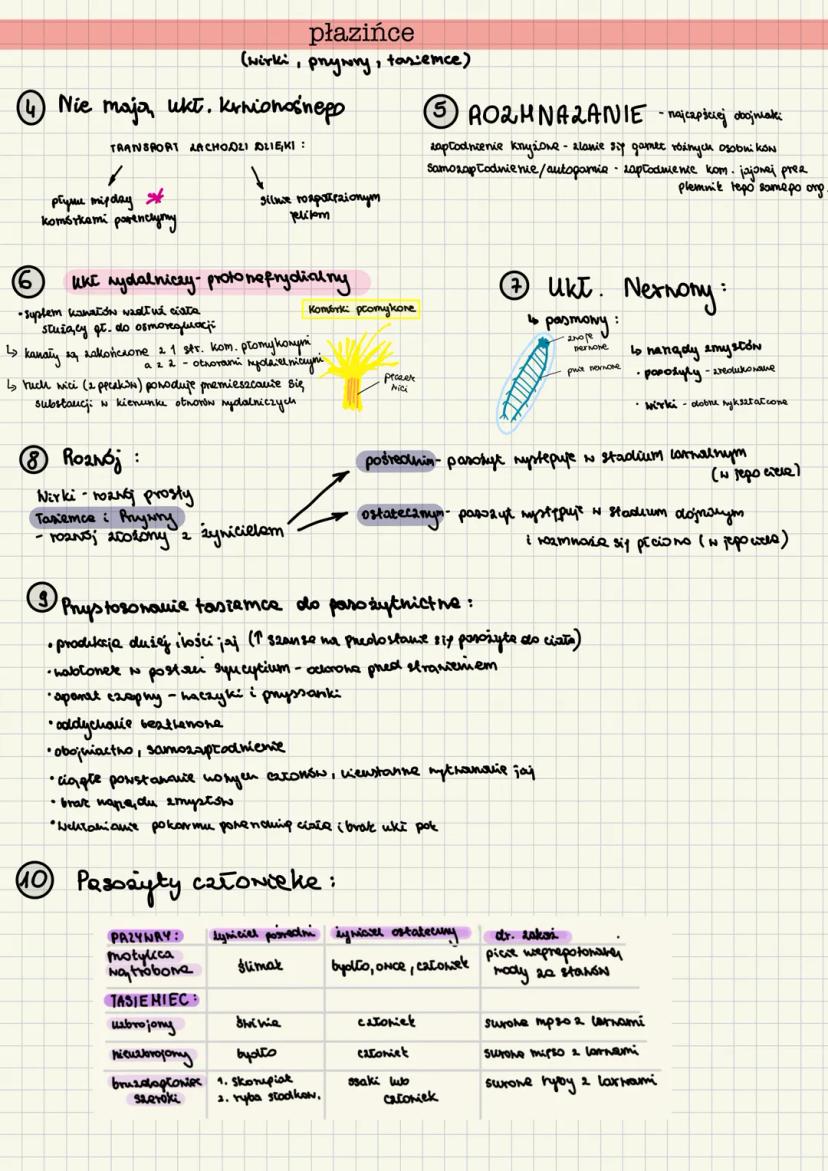 płazińce
(wirki, przywry, tasiemce)
4 Nie mają ukł. krwionośnego
TRANSPORT ZACHODZI DZIĘKI :
płynu między *
komórkami parenchymy
silnie rozgałęzionym
jelitom
5 ROZMNAŻANIE - najczęściej obojniaki
zapłodnienie krzyżowe - zlanie się gamet różnych osobników
samozapłodnienie/autogamia - zapłodnienie kom. jajowej przez
plemnik tego samego org.
6 Ukł wydalniczy - protonefrydialny
• system kanałów wzdłuż ciała
służący gł. do osmoregulacji
↳ kanały są zakończone z 1 str. kom. płomykowymi
a z 2 - otworami wydalniczymi
↳ ruch wici (z pęczków) powoduje przemieszczanie się
substancji w kierunku otworów wydalniczych
Komórki płomykowe
pęczek
wici
7 Ukł. Nerwowy :
↳ pasmowy :
zwoje
nerwowe
pnie nerwowe
↳ narządy zmysłów
• pasożyty - zredukowane
• wirki - dobrze wykształcone
8 Rozwój :
Wirki - rozwój prosty
Tasiemce i Przywry
- rozwój złożony z żywicielem
pośrednim - pasożyt występuje w stadium larwalnym
(w jego ciele)
ostatecznym - pasożyt występuje w stadium dojrzałym
i rozmnaża się płciowo (w jego ciele)
9 Przystosowanie tasiemca do pasożytnictwa :
• produkcja dużej ilości jaj (↑ szansa na przedostanie się pasożyta do ciała)
• nabłonek w postaci syncytium - ochrona przed strawieniem
• aparat czepny - haczyki i przyssawki
• oddychanie beztlenowe
• obojniactwo, samozapłodnienie
• ciągłe powstawanie nowych członów, nieustanne wytwarzanie jaj
• brak narządu zmysłów
• wchłanianie pokarmu powierzchnią ciała i brak ukł pok
10 Pasożyty człowieka :
PRZYWRY: żywiciel pośredni żywiciel ostateczny dr. zakaż.
motylica
wątrobowa ślimak bydło, owce, człowiek picie nieprzegotowanej
wody ze stawów
TASIEMIEC:
uzbrojony świnia człowiek surowe mięso z larwami
nieuzbrojony bydło człowiek surowe mięso z larwami
bruzdogłowiec
szeroki 1. skorupiak
2. ryba słodkow. ssaki lub
człowiek surowe ryby z larwami